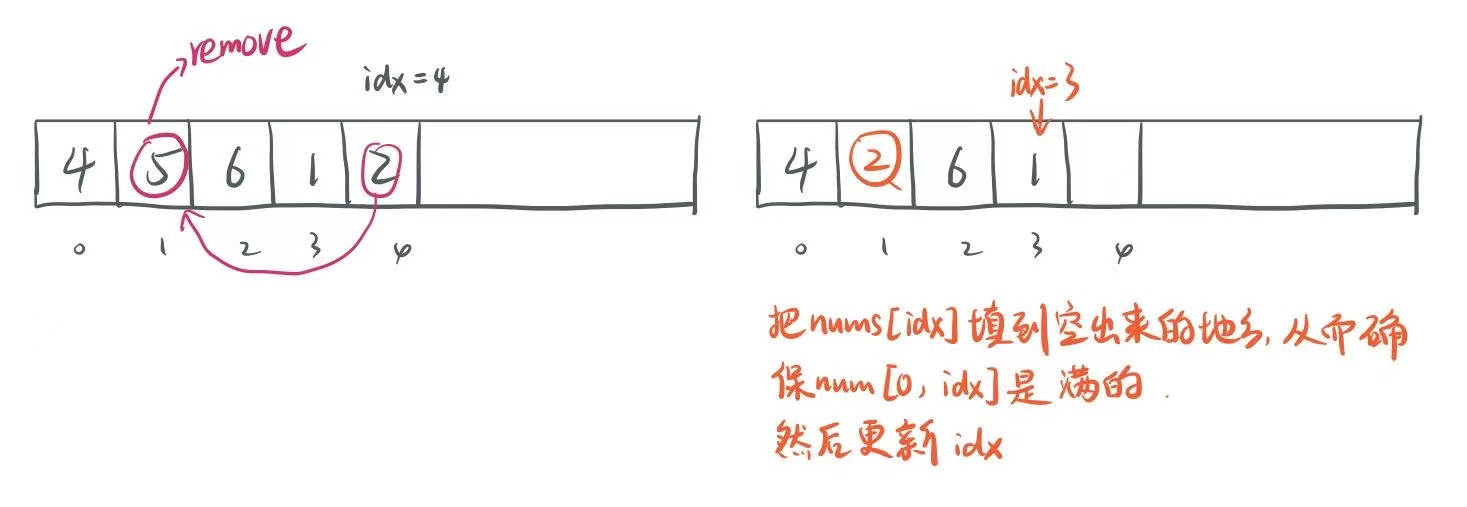 remove
idx=4
4 5 6 1 2
0 1 2 3 4
idx=3
4 2 6 1
0 1 2 3 4
把nums[idx]填到空出来的地方,从而确
保num[0,idx]是满的.
然后更新idx